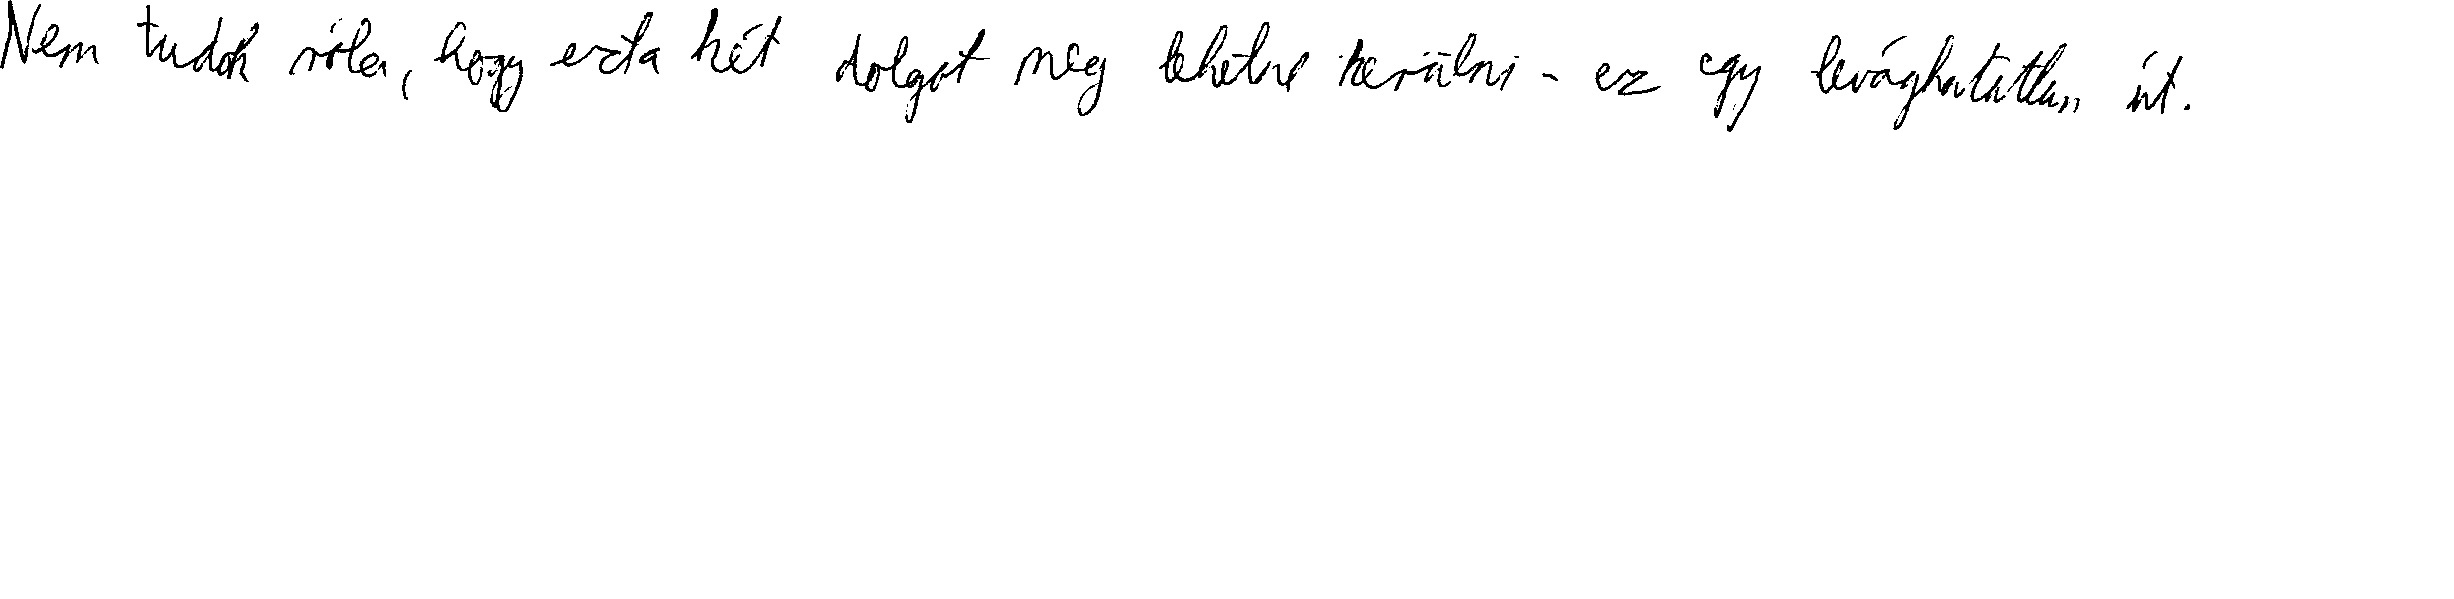 Nem tudok róla, hogy ezta két dolgot meg lehetne kerülni - ez egy levághatatlan út.